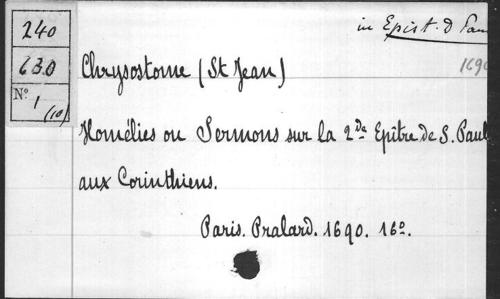 240
630
Nº 1
(10)
in Epist. D. Pau
1690
Chrysostome (St Jean)
Homélies ou Sermons sur la 2de Epître de S. Paul
aux Corinthiens.
Paris. Pralard. 1690. 16º.